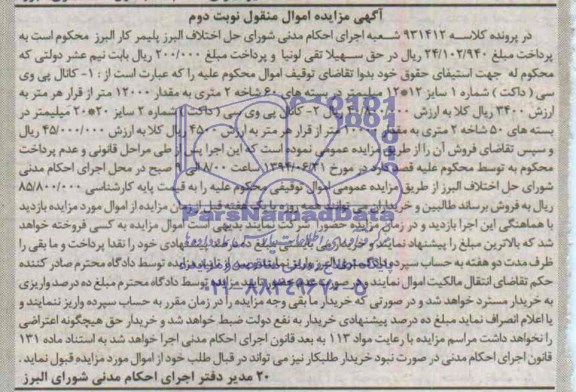 آگهی مزایده اموال منقول نوبت دوم
در پرونده کلاسه ۹۳۱۴۱۲ شعبه اجرای احکام مدنی شورای حل اختلاف البرز پلیمر کار البرز محکوم است به
پرداخت مبلغ ۳۴/۱۰۲/۹۴۰ ریال در حق سهیلا تقی لونیا و پرداخت مبلغ ۲۰۰/۰۰۰ ریال بابت نیم عشر دولتی که
محکوم له جهت استیفای حقوق خود بدوا تقاضای توقیف اموال محکوم علیه را که عبارت است از : ۱- کانال پی وی
سی ( داکت ) شماره ۱ سایز ۱۲*۱۲ میلیمتر در بسته های ۶۰ شاخه ۲ متری به مقدار ۱۲۰۰۰ متر از قرار هر متر به
ارزش ۳۴۰۰ ریال کلا به ارزش ریال ۲- کانال پی وی سی ( داکت ) شماره ۲ سایز ۲۰*۲۰ میلیمتر در
بسته های ۵۰ شاخه ۲ متری به مقدار متر از قرار هر متر به ارزش ۴۵۰۰ ریال کلا به ارزش ۴۵/۰۰۰/۰۰۰ ریال
و سپس تقاضای فروش آن را از طریق مزایده عمومی نموده است که این اجرا پس از طی مراحل قانونی و عدم پرداخت
محکوم به توسط محکوم علیه قصد دارد در مورخ ۱۳۹۴/۰۶/۳۱ ساعت ۸/۰۰ الی ۹ صبح در محل اجرای احکام مدنی
شورای حل اختلاف البرز از طریق مزایده عمومی اموال توقیفی محکوم علیه را به قیمت پایه کارشناسی ۸۵/۸۰۰/۰۰۰
ریال به فروش برساند طالبین و خریداران می توانند همه روزه تا یک هفته قبل از زمان مزایده از اموال مورد مزایده بازدید
با هماهنگی این اجرا بازدید و در زمان مزایده حضور شرکت نمایند بدیهی است اموال مزایده به کسی فروخته خواهد
شد که بالاترین مبلغ را پیشنهاد نماید و خریدار می بایستی مبلغ ده درصد پیشنهادی خود را نقدا پرداخت و ما بقی را
ظرف مدت دو هفته به حساب سپرده واریز نماید مزایده توسط دادگاه محترم صادر کننده
حکم تقاضای انتقال مالکیت اموال نمایند و در صورت عدم توسط دادگاه محترم مبلغ ده درصد واریزی
به خریدار مسترد خواهد شد و در صورتی که خریدار ما بقی وجه مزایده را در زمان مقرر به حساب سپرده واریز ننمایند و
یا اعلام انصراف نماید مبلغ ده درصد پیشنهادی خریدار به نفع دولت ضبط خواهد شد و خریدار حق هیچگونه اعتراضی
را نخواهد داشت مراسم مزایده با رعایت مواد ۱۱۳ به بعد قانون اجرای احکام مدنی اجرا خواهد شد به استناد ماده ۱۳۱
قانون اجرای احکام مدنی در صورت نبود خریدار طلبکار نیز می تواند در قبال طلب خود از اموال مورد مزایده قبول نماید .
۲۰ مدیر دفتر اجرای احکام مدنی شورای البرز
ParsNamadData
۰۲۱-۸۸۳۴۹۶۷۰-۵